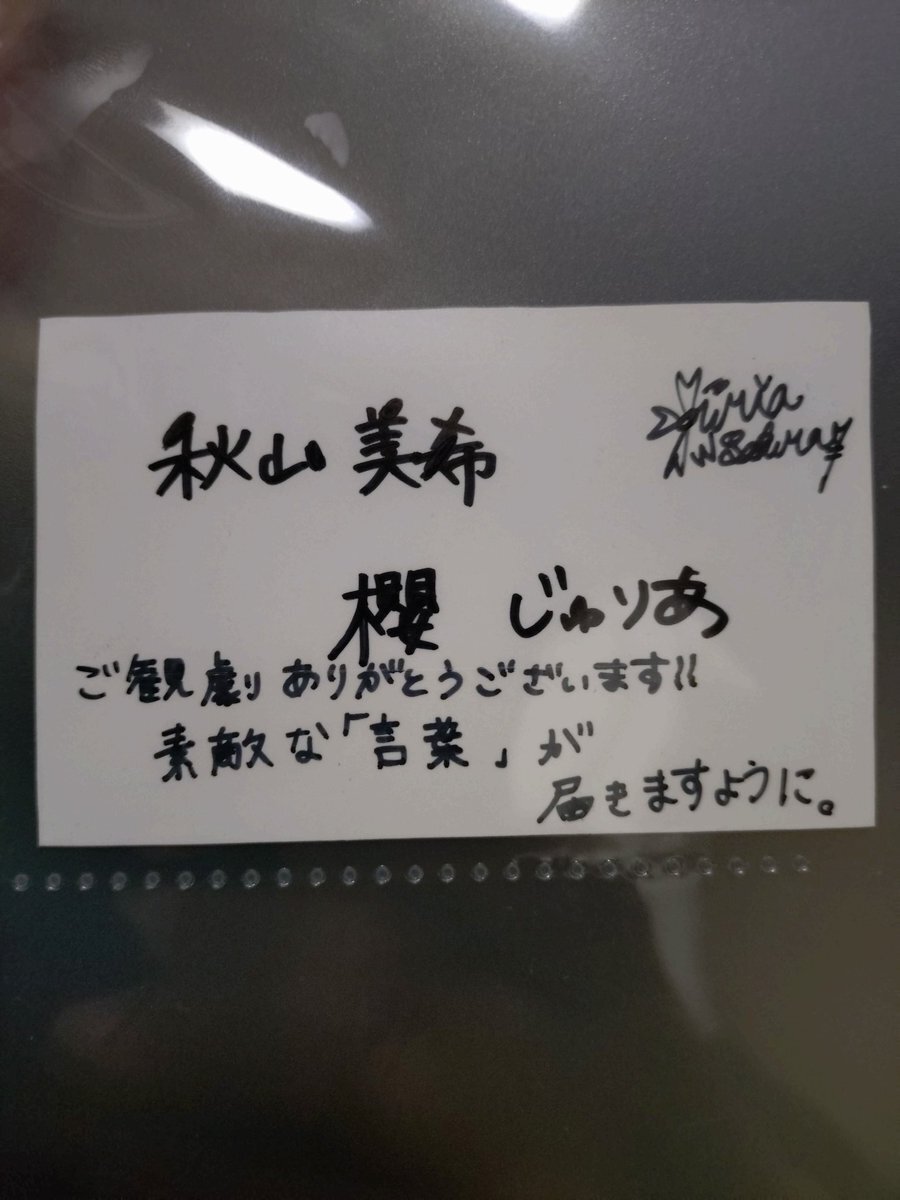 秋山 美希
櫻 じゅりあ
ご観劇ありがとうございます!!
素敵な「言葉」が
届きますように。